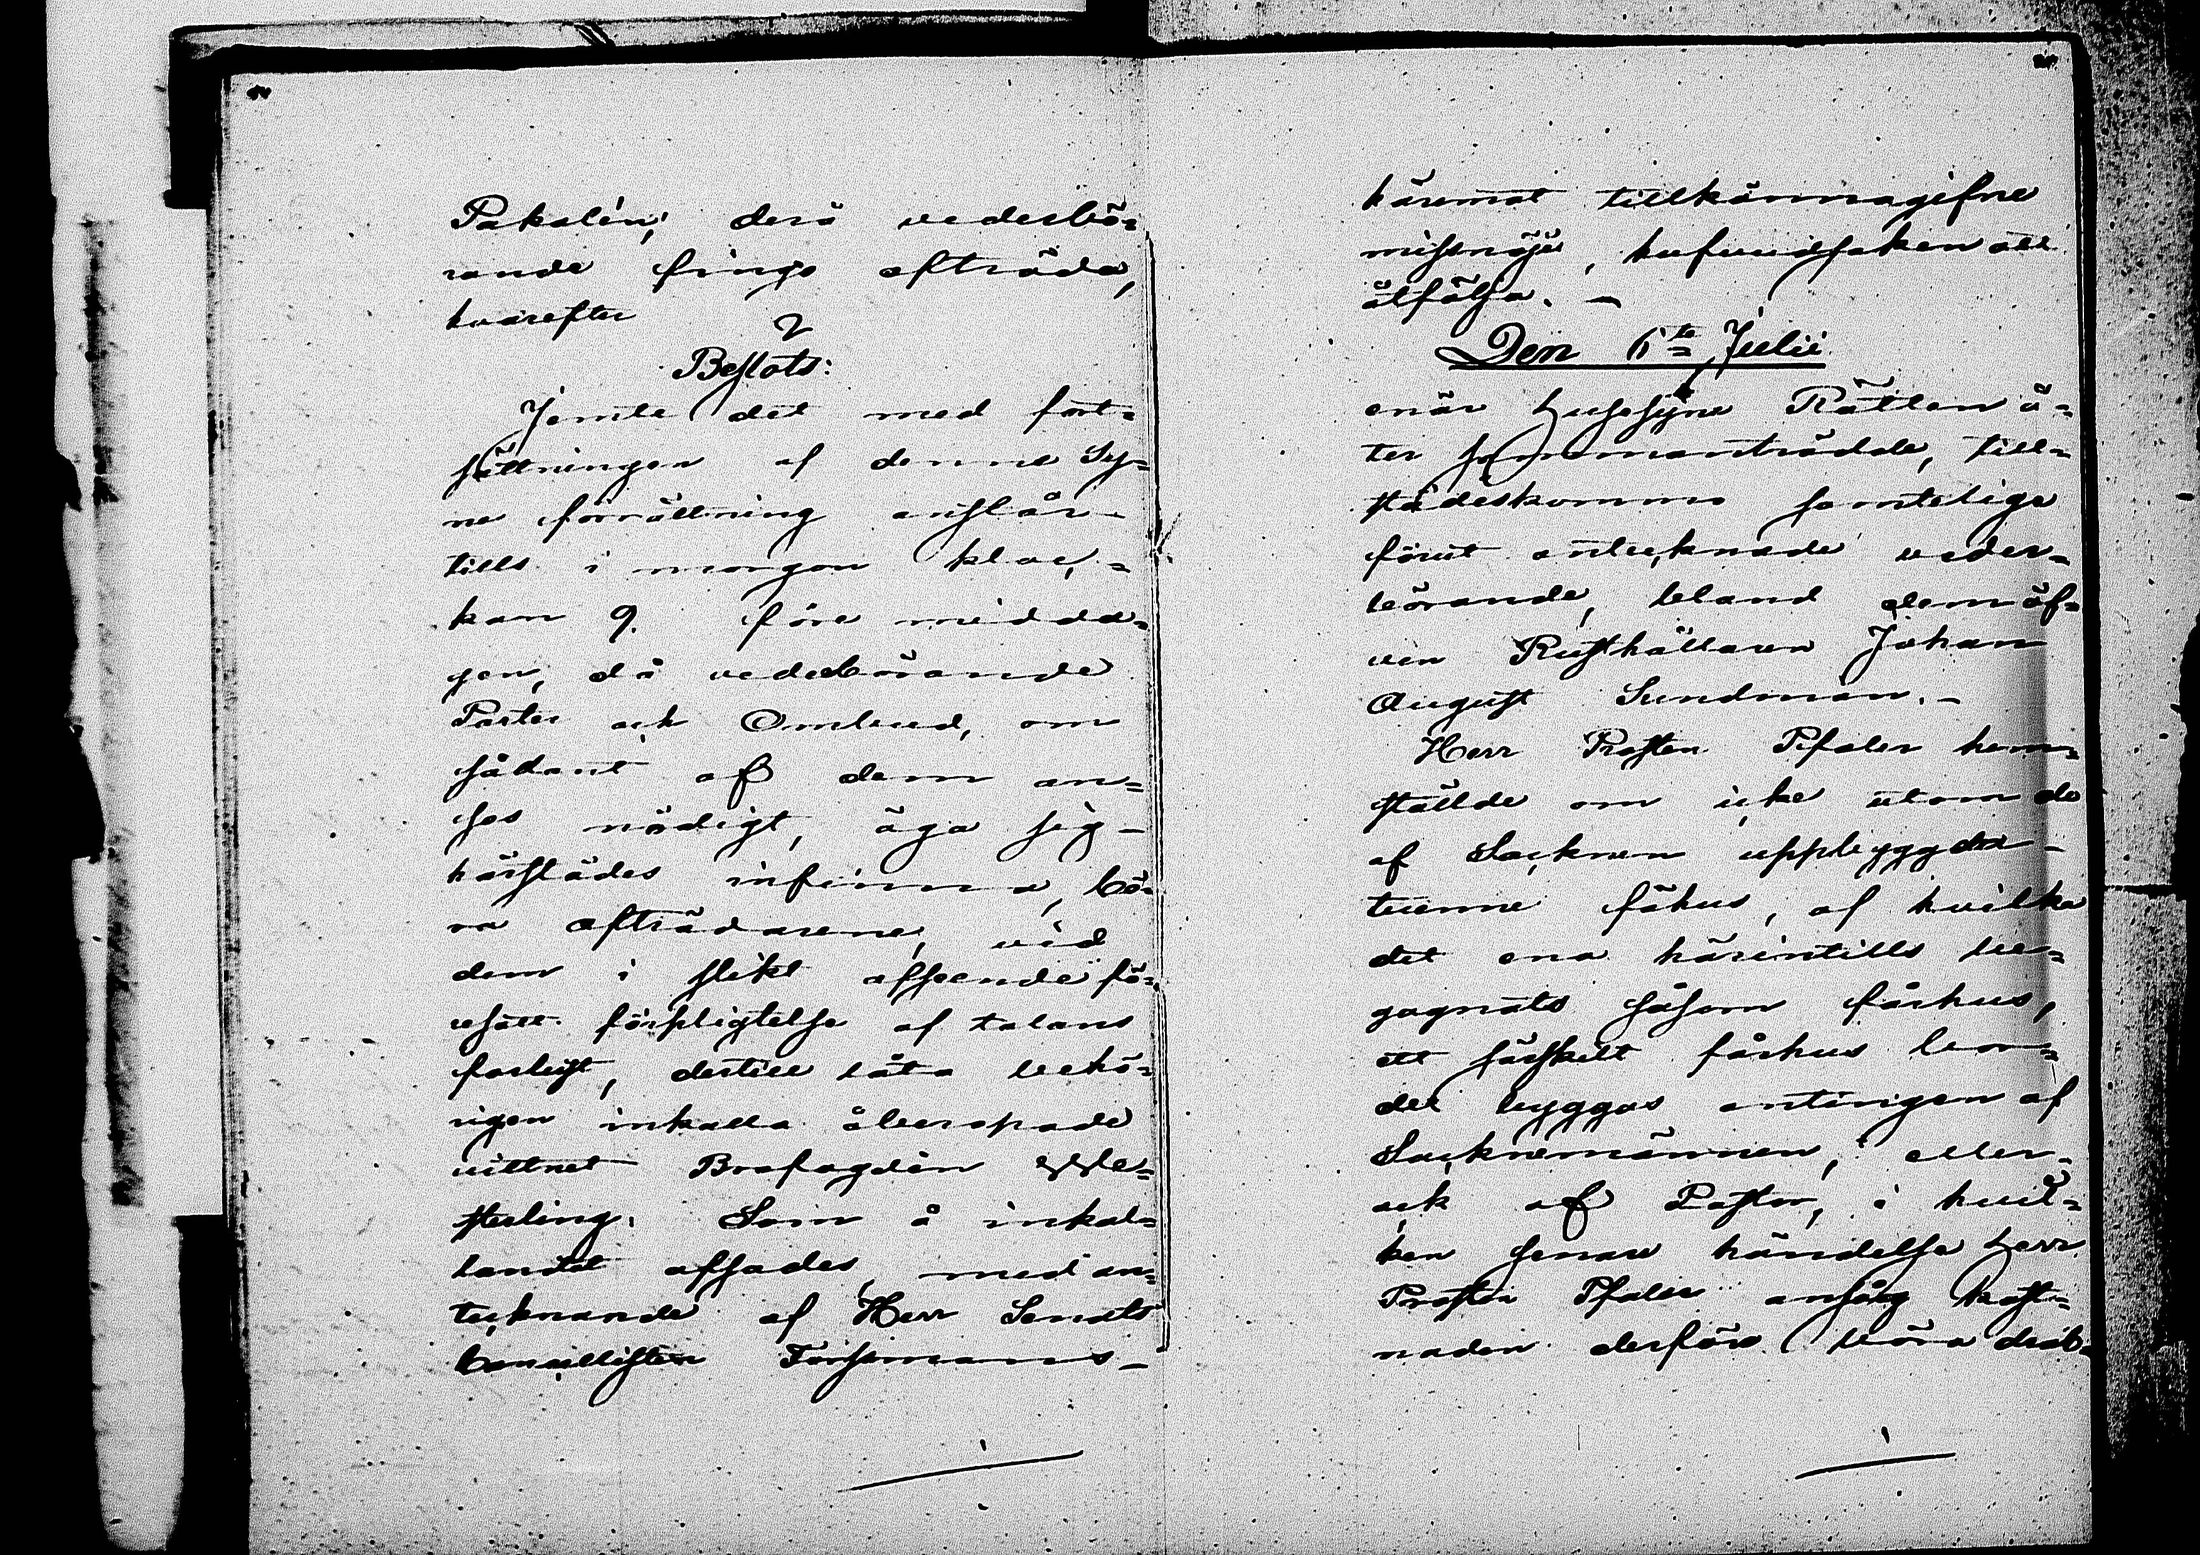 Pakalén; derå vederbö=
rande fingo afträda,
hvarefter
Beslöts:
Jemte det med fort=
sättningen af denna Sy=
ne förrättning anstår
tills i morgon kloc=
kan 9. före midda=
gen, då vederbörande
Parter och Ombud, om
sådant af dem an=
ses nödigt, äga sig
härstädes infinna, bö=
ra afträdarene, vid
dem i slikt afseende fö=
resatt förpligtelse af talans
förlust, dertill låta behö=
rigen inkalla åberopade
vittnet Brofogden We=
sterling. Som å inkal=
landet afsades, med an=
tecknande af Herr Senats
Cancellisten Forssmans
häremot tillkännagifne
missnöje, hufvudsaken att
åtfölja. —
Den 6te Julii
enär Husesyne Rätten å=
ter sammanträdde, till=
städeskommo samtelige
förut antecknade veder=
börande, bland dem äf=
ven Rusthållaren Johan
August Sundman. —
Herr Prosten Pfaler hem=
stälde om icke utom de
af Socknen uppbyggda
tvenne fähus, af hvilka
det ena härintills be=
gagnats såsom fårhus,
ett särskilt fårhus bor=
det byggas antingen af
Sockremännen, eller
ock af Pastor, i hvil=
ken senare händelse Herr
Prosten Pfaler ansåg kost=
naden derföre böra drab=